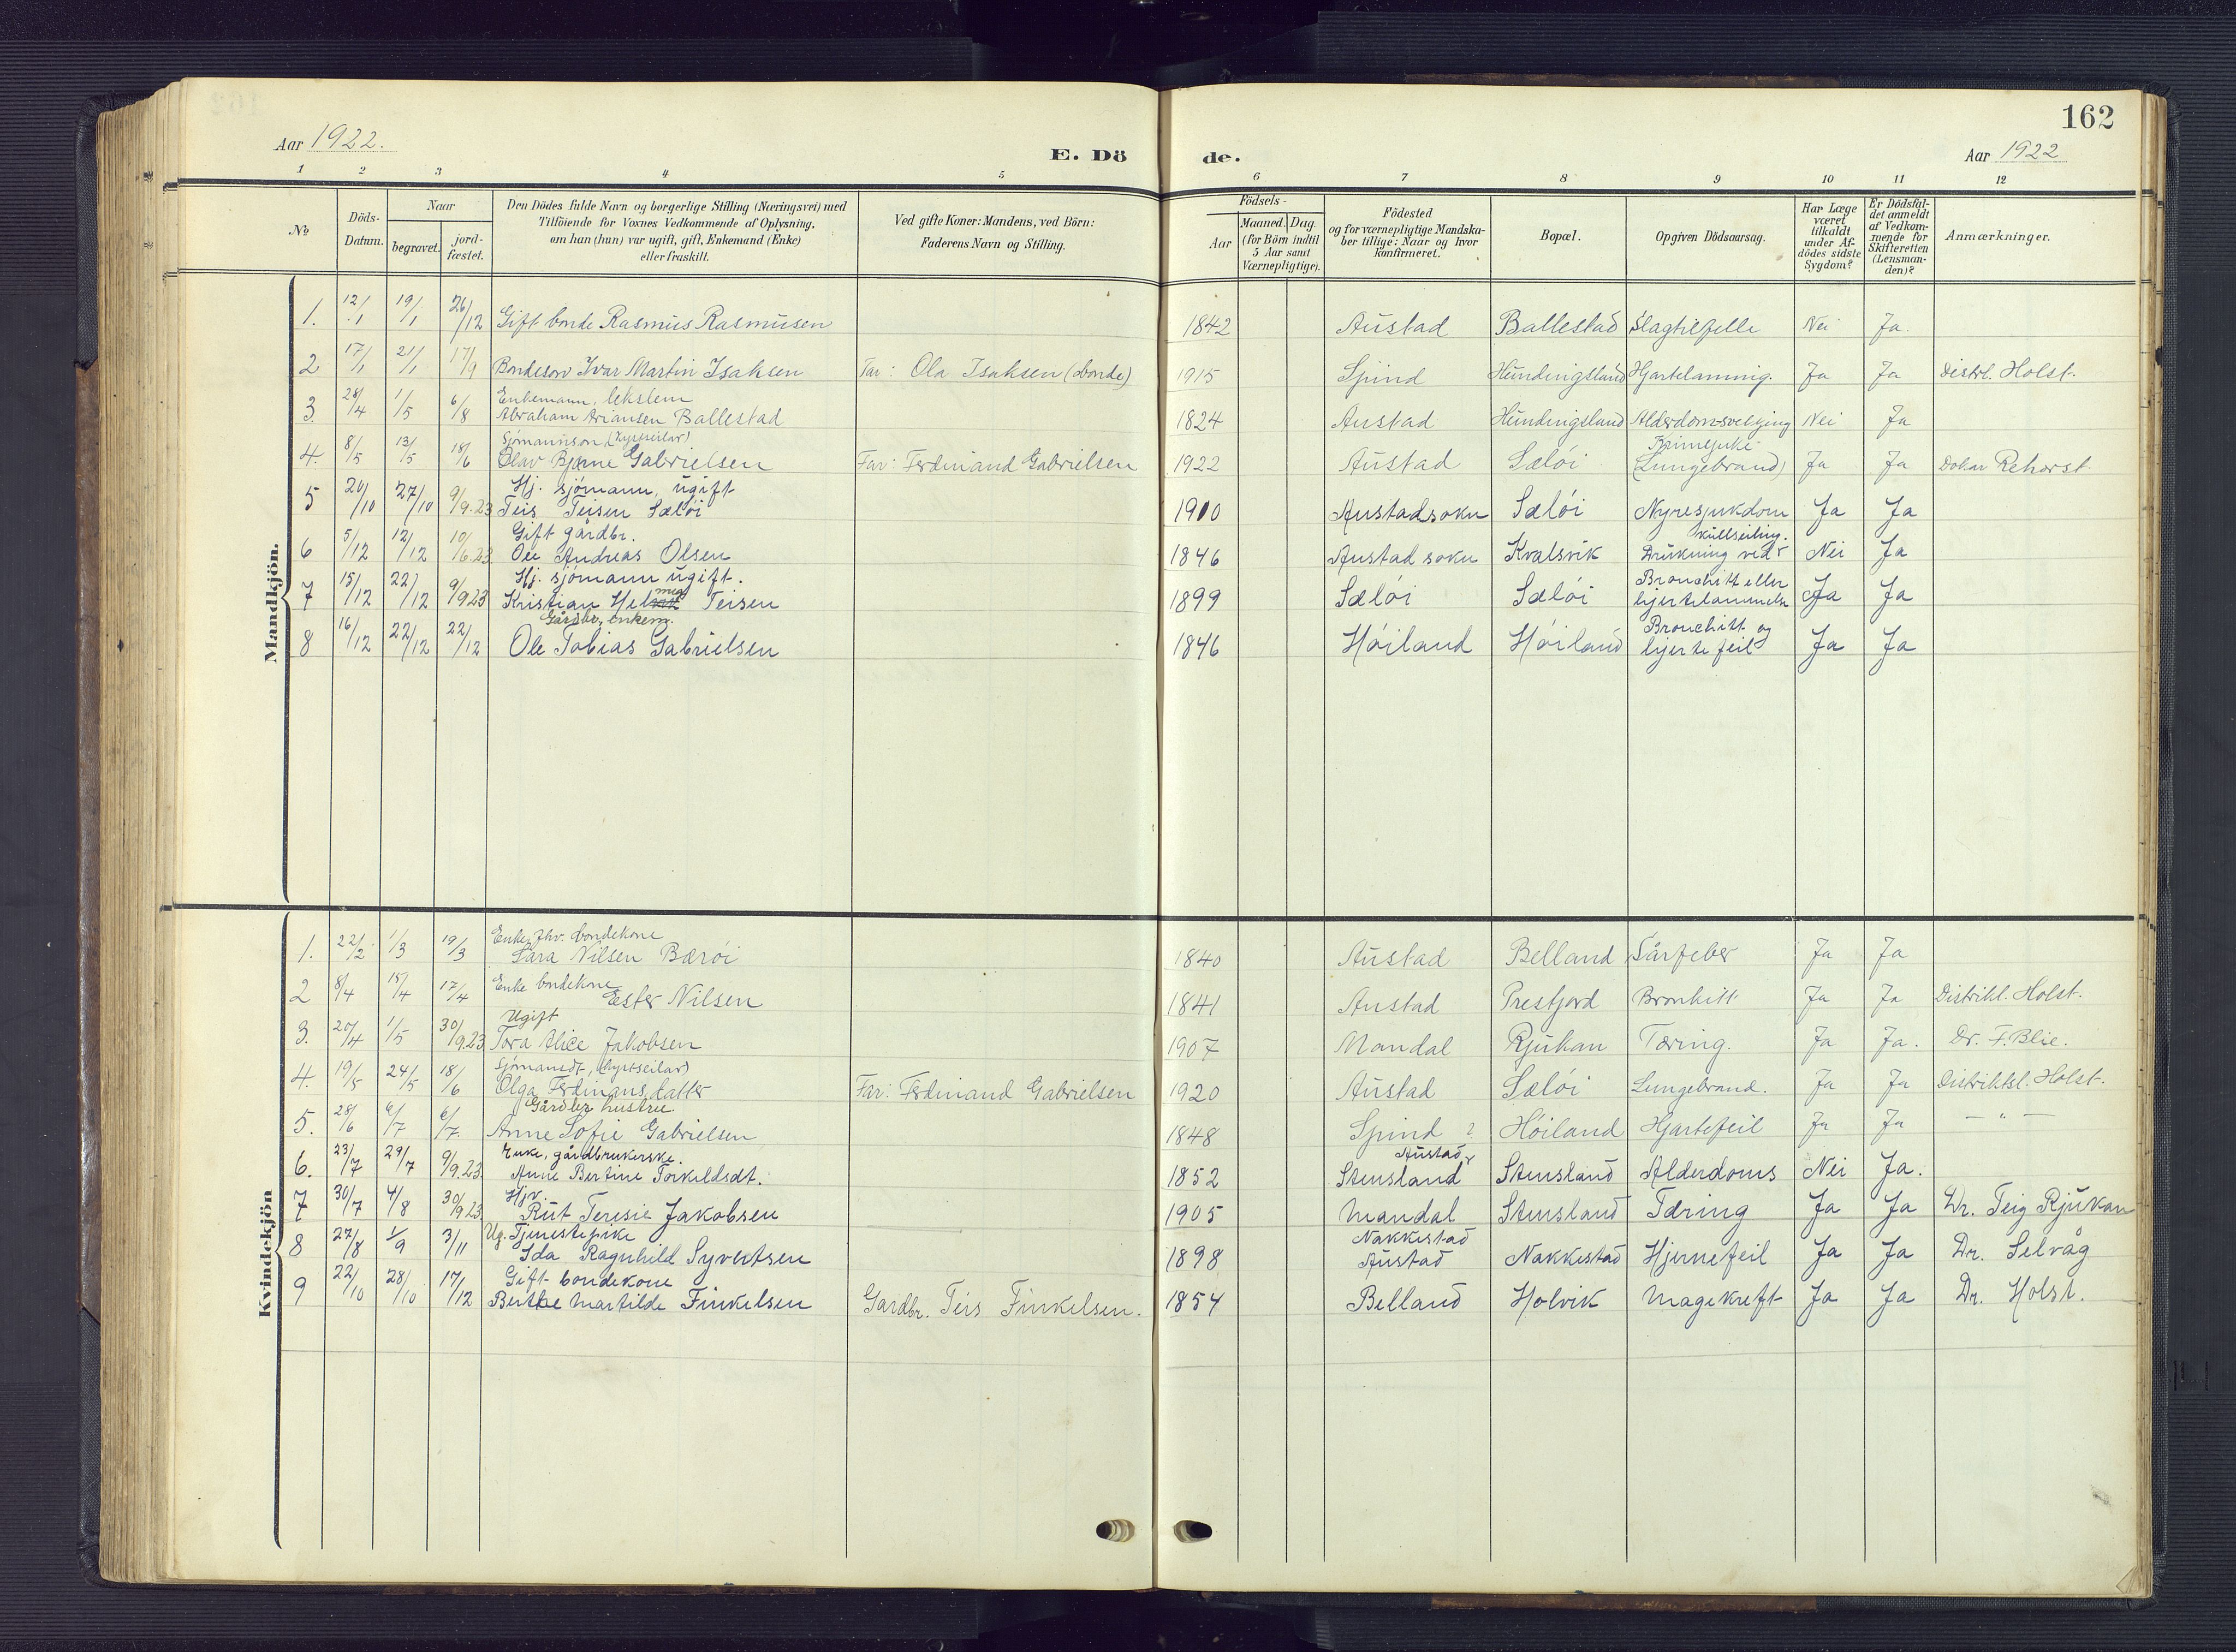 162
Aar 1922.
E. Dö de.
Aar 1922
1 2 3 4 5 6 7 8 9 10 11 12
No
Döds-Datum.
Naar
begravet.
jord-fæstet.
Den Dödes fulde Navn og borgerlige Stilling (Næringsvei) med
Tilföiende for Voxnes Vedkommende af Oplysning,
om han (hun) var ugift, gift, Enkemand (Enke)
eller fraskilt.
Ved gifte Koner: Mandens, ved Börn:
Faderens Navn og Stilling.
Födsels-
Aar
Maaned. Dag.
(for Börn indtil
5 Aar samt
Værnepligtige).
Födested
og for værnepligtige Mandska-
ber tillige: Naar og hvor
konfirmeret.
Bopæl.
Opgiven Dödsaarsag.
Har Læge
været
tilkaldt
under Af-
dödes sidste
Sygdom?
Er Dödsfal-
det anmeldt
af Vedkom-
mende for
Skifteretten
(Lensman-
den)?
Anmærkninger.
Mandkjön.
1. 12/1 19/1 26/12 Gift bonde Rasmus Rasmusen 1842 Austad Ballestad Slagtilfelle Nei Ja.
2 17/1 21/1 17/9 Bondeson Ivar Martin Isaksen Far: Ola Isaksen (bonde) 1915 Spind Hundingsland Hjartelamnig. Ja Ja Distrl. Holst.
Enkemann, lekslem
3. 28/4 1/5 6/8 Abraham Ariansen Ballestad 1824 Austad Hundingsland Alderdomsvekjing Nei Ja
Sjömannson, (kystseilar)
4. 8/5 13/5 18/6 Olav Bjarne Gabrielsen Far: Ferdinand Gabrielsen 1922 Austad Sælöi (Lungebrand) Ja Ja Doktar Rehorst
Hj. sjömann, ugift
5 20/10 27/10 9/9.23 Teis Teisen Sælöi 1910 Austadsokn Sælöi Nyresjukdom Ja Ja
Gift gårdbr.
kullseiling.
6 5/12 12/12 10/6.23 Ole Andreas Olsen 1846 Austad sokn Kvalsvik Drukning ved Nei Ja
Hj. sjömann ugift.
Bronchitt eller
7 15/12 22/12 9/9 23 Kristian Helmer Teisen 1899 Sælöi Sælöi hjertelammelse Ja Ja
Gårdbr. enkem.
Bronchitt og
8 16/12 22/12 22/12 Ole Tobias Gabrielsen 1846 Höiland Höiland hjertefeil Ja Ja
Kvindekjön
Enke, fhv. bondekone
1. 22/2 1/3 19/3 Sara Nilsen Bæröi 1840 Austad Belland Sårfeber Ja Ja
Enke bondekone
2 8/4 15/4 17/4 Ester Nilsen 1841 Austad Prestjord Bronkitt Ja Ja Distrikl. Holst.
Ugift
3. 20/4 1/5 30/9.23 Tora Alice Jakobsen 1907 Mandal Rjukan Tæring. Ja Ja. Dr. F. Blie.
Sjömansdt, (kystseilar)
4. 19/5 24/5 18/6 Olga Ferdinansdatter Far: Ferdinand Gabrielsen 1920 Austad Sælöi Lungebrand. Ja Ja Distriktsl. Holst.
Gårdbr hustru
5. 28/6 6/7 6/7. Anne Sofie Gabrielsen 1848 Spind ? Höiland Hjartefeil Ja Ja — " —
Enke, gårdbrukerske.
Austad
6. 23/7 29/7 9/9.23. Anne Bertine Torkildsdt. 1852 Stensland Stensland Alderdoms Nei Ja.
Hjv.
7 30/7 4/8 30/9 23 Rut Teresie Jakobsen 1905 Mandal Stensland Tæring Ja Ja Dr. Teig Rjukan
Ug. Tjenestepike
Nakkestad
8 27/8 1/9 3/11 Ida Ragnhild Syvertsen 1898 Austad Nakkestad Hjernefeil Ja Ja Dr. Selvåg
Gift bondekone
9 22/10 28/10 17/12 Berthe Martilde Finkelsen Gardbr. Teis Finkelsen. 1854 Belland Holvik Magekreft Ja Ja Dr. Holst.